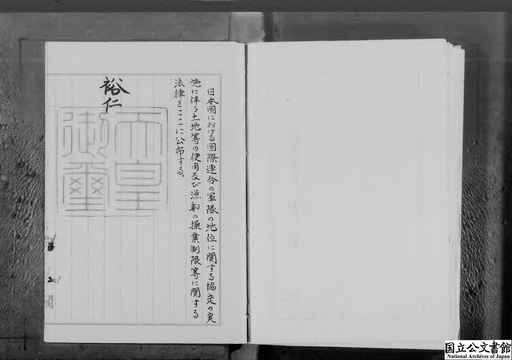 日本国における国際連合の軍隊の地位に関する協定の実
施に伴う土地等の使用及び漁船の操業制限等に関する
法律をここに公布する。
裕仁
天皇
御璽
国立公文書館
National Archives of Japan